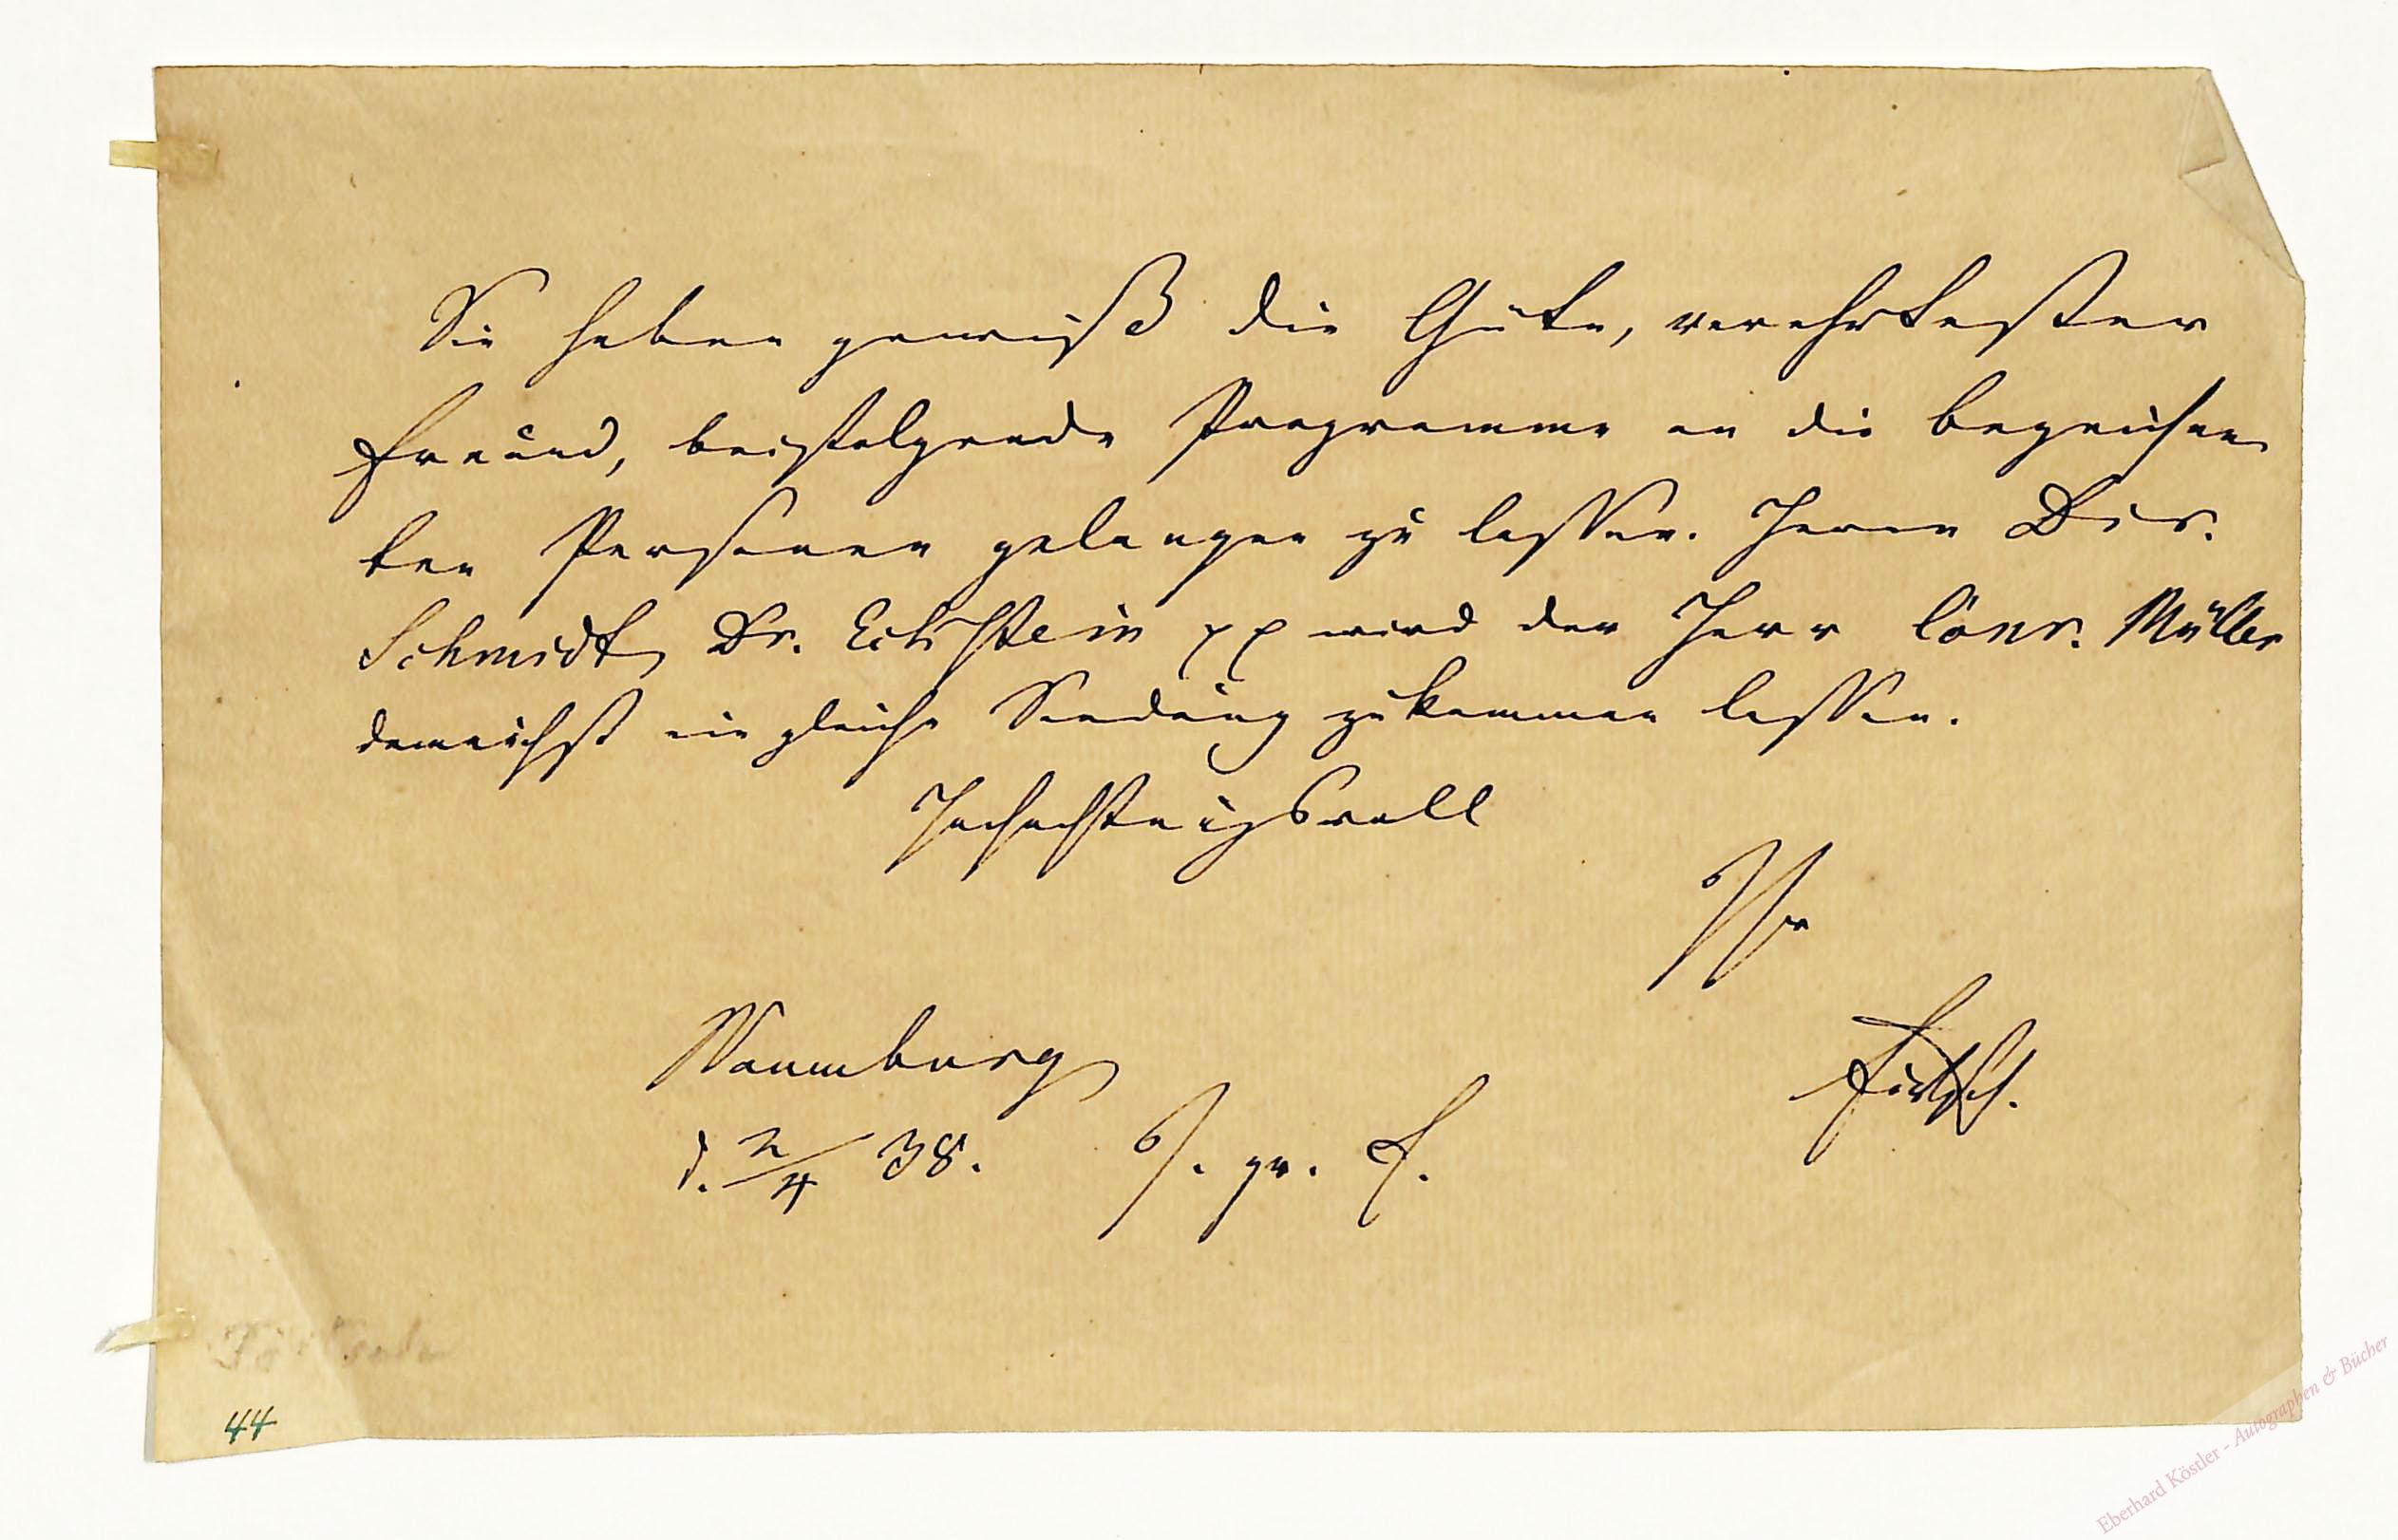 Sie haben gewiß die Güte, verehrtester
Freund, beifolgende Programme an die bezeichne
ten Personen gelangen zu lassen. Herrn Dir.
Schmidt, Dr. Eckstein pp wird der Herr Conr. Müller
demnächst eine gleiche Sendung zukommen lassen.
Hochachtungsvoll
Ihr
Förtsch.
Naumburg
d. 2/4 38.
44
Eberhard Köstler - Autographen & Bücher